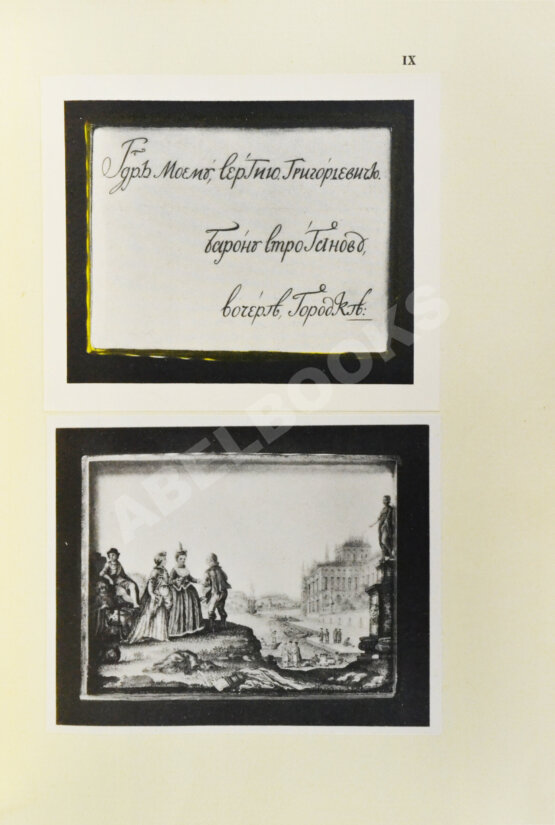 IX
Гдрѣ Моему, Сергию Григориевичю.
барону Строганову,
вочерѣ, Городкѣ:
ABELBOOKS